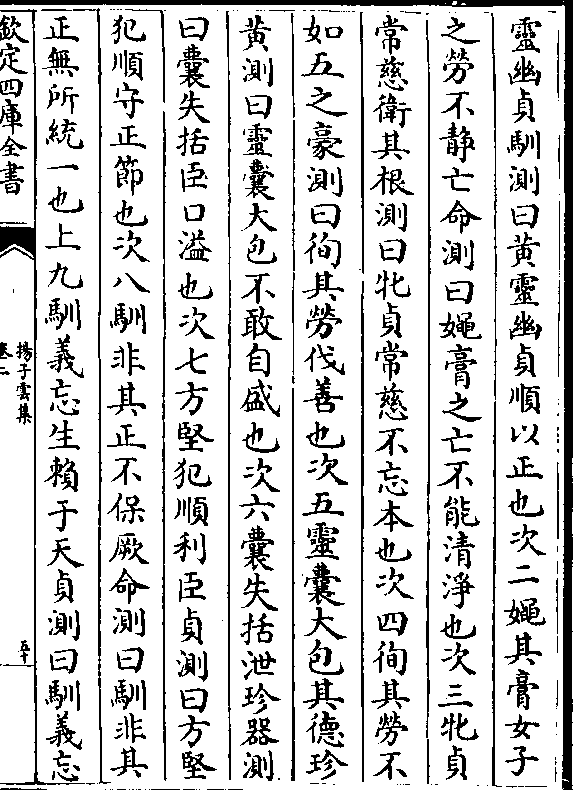 靈幽貞馴測曰黄靈幽貞順以正也次二䋲其膏女子
之勞不静亡命測曰䋲膏之亡不能清淨也次三牝貞
常慈衛其根測曰牝貞常慈不忘本也次四徇其勞不
如五之豪測曰徇其勞伐善也次五靈囊大包其德珍
黄測曰靈囊大包不敢自盛也次六囊失括泄珍器測
曰囊失括臣口溢也次七方堅犯順利臣貞測曰方堅
犯順守正節也次八馴非其正不保厥命測曰馴非其
正無所統一也上九馴義忘生賴于天貞測曰馴義忘
欽定四庫全書
揚子雲集
卷二
五十